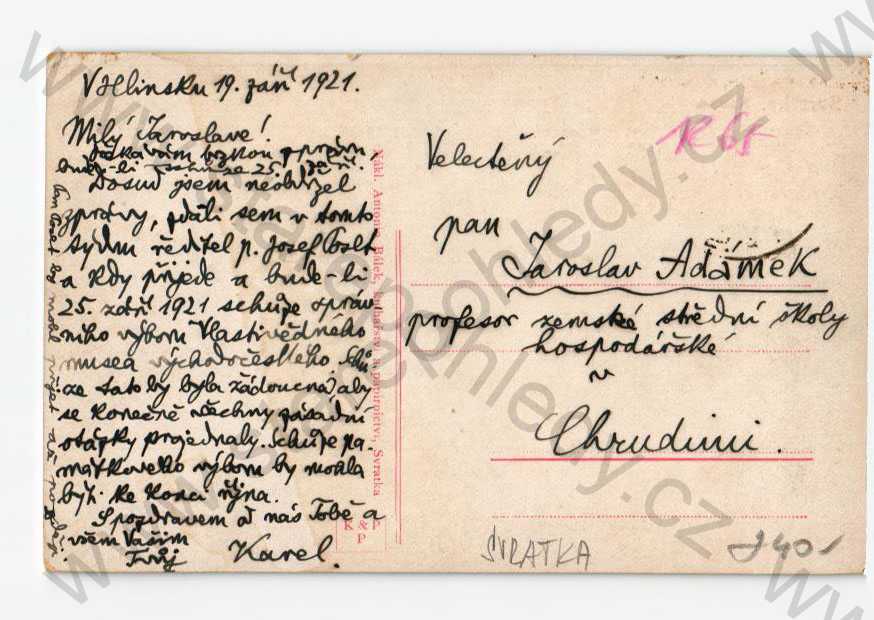 V Hlinsku 19. září 1921.
Milý Jaroslave!
vám brzkou zprávu
bude-li schůze 25. září.
Dosud jsem neobdržel
zprávy, zdali sem v tomto
týdnu ředitel p. Josef
a kdy přijede a bude-li
25. září 1921 schůze správ-
ního výboru Vlastivědného
musea východočeského. Schů-
ze tato by byla žádoucna, aby
se konečně všechny zásadní
otázky projednaly. Schůze pa-
mátkového výboru by mohla
býti ke konci října.
S pozdravem od nás Tobě a
všem Vašim
Tvůj Karel.
Nákl. Antonín Bílek, knihařství a papírnictví, Svratka
K & P
P
R 65
Velectěný
pan
Jaroslav Adámek
profesor zemské střední školy
hospodářské
v
Chrudimi.
SVRATKA
240,-
www.starepohledy.cz
www.starepohledy.cz